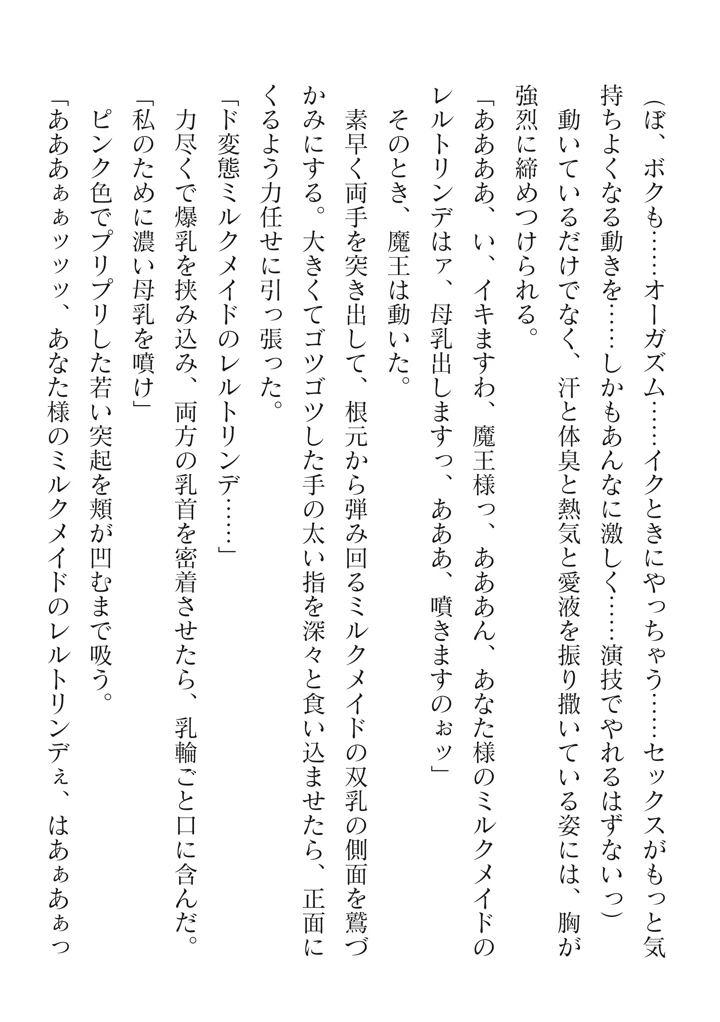 (ぼ、ボクも……オーガズム……イクときにやっちゃう……セックスがもっと気
持ちよくなる動きを……しかもあんなに激しく……演技でやれるはずないっ)
　動いているだけでなく、汗と体臭と熱気と愛液を振り撒いている姿には、胸が
強烈に締めつけられる。
「ああああ、い、イキますわ、魔王様っ、あああん、あなた様のミルクメイドの
レルトリンデはァ、母乳出しますっ、あああ、噴きますのぉッ」
　そのとき、魔王は動いた。
　素早く両手を突き出して、根元から弾み回るミルクメイドの双乳の側面を鷲づ
かみにする。大きくてゴツゴツした手の太い指を深々と食い込ませたら、正面に
くるよう力任せに引っ張った。
「ド変態ミルクメイドのレルトリンデ……」
　力尽くで爆乳を挟み込み、両方の乳首を密着させたら、乳輪ごと口に含んだ。
「私のために濃い母乳を噴け」
　ピンク色でプリプリした若い突起を頬が凹むまで吸う。
「あああぁぁッッッ、あなた様のミルクメイドのレルトリンデぇ、はあぁあぁっ